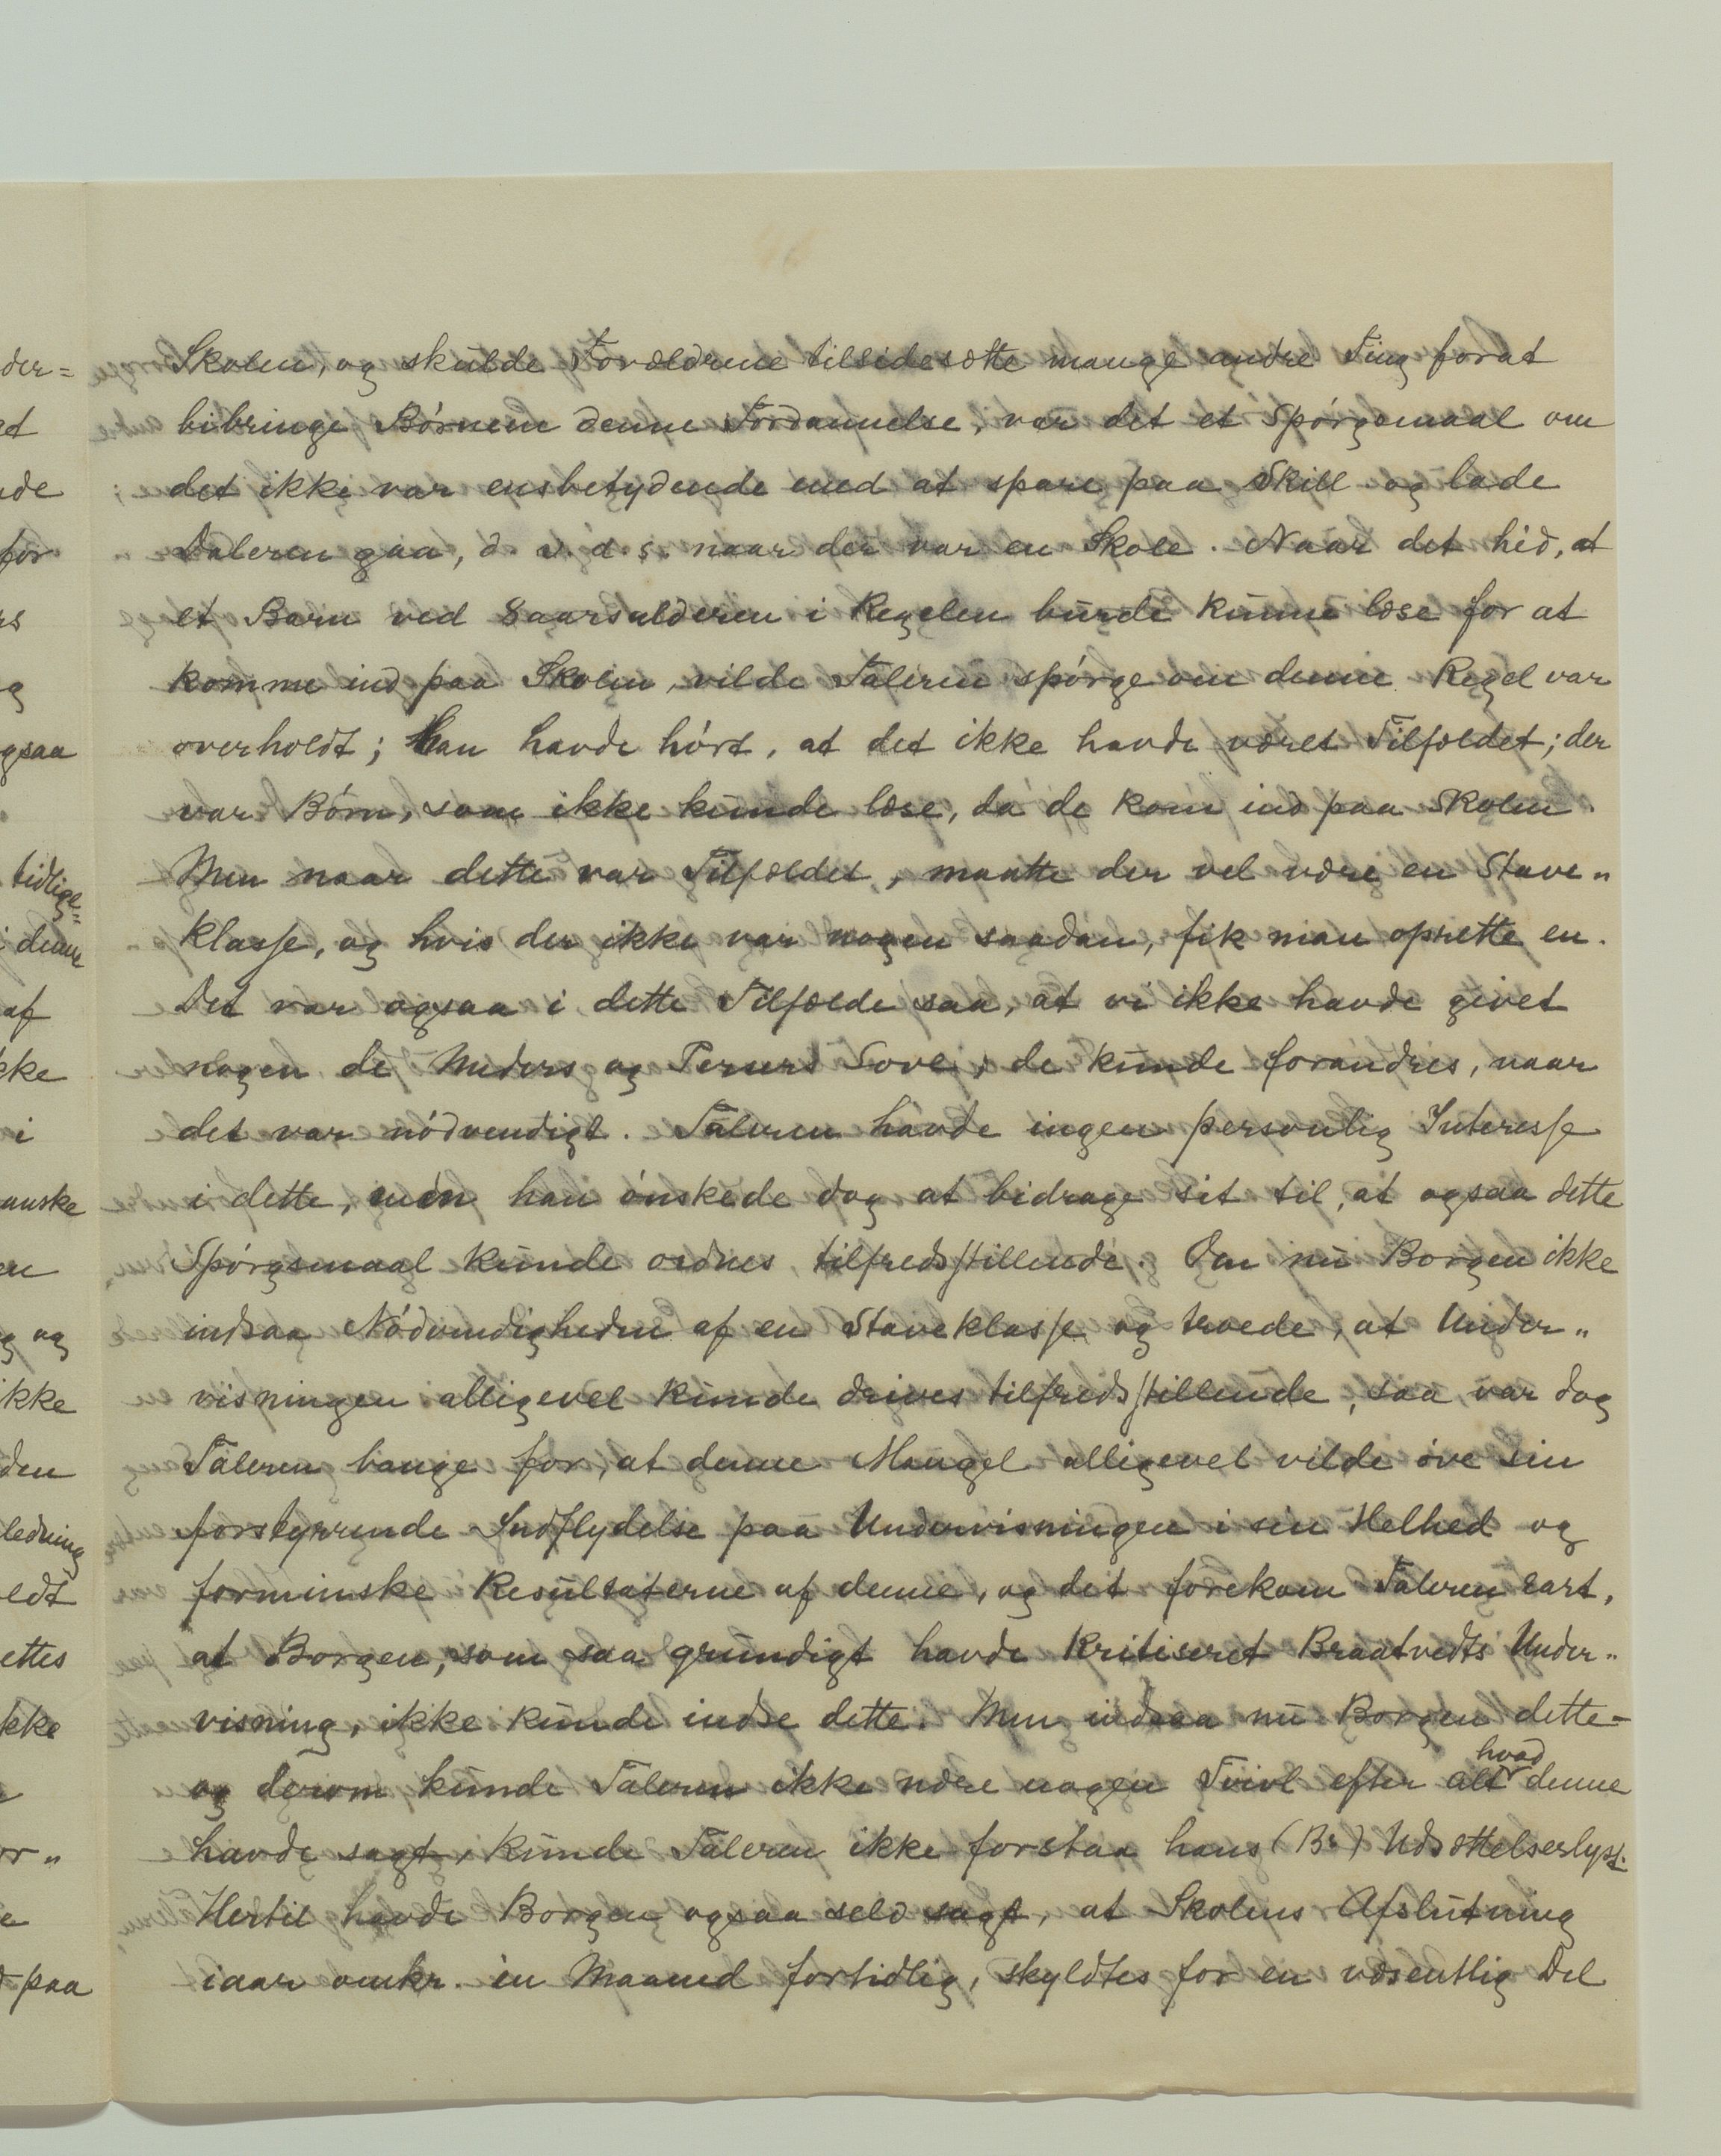 Skolen, og skulde Forældrene tilsidesætte mange andre Ting forat
bibringe Børnene denne Fordannelse, var det et Spørgsmaal om
det ikke var ensbetydende med at spare paa Skill og lade
Daleren gaa, d. v. d. s. naar der var en Skole. Naar det hed, at
et Barn ved 8aarsalderen i Regelen burde kunne læse for at
komme ind paa Skolen, vilde Taleren spørge om denne Regel var
overholdt; han havde hørt, at det ikke havde været Tilfældet; der
var Børn, som ikke kunde læse, da de kom ind paa Skolen.
Men naar dette var Tilfældet, maatte der vel være en Stave„
klasse, og hvis der ikke var nogen saadan, fik man oprette en.
Det var ogsaa i dette Tilfælde saa, at vi ikke havde givet
nogen de Meders og Persers Love, de kunde forandres, naar
det var nødvendigt. Taleren havde ingen personlig Interesse
i dette, men han ønskede dog at bidrage sit til, at ogsaa dette
Spørgsmaal kunde ordnes tilfredsstillende. Om nu Borgen ikke
indsaa Nødvendigheden af en Staveklasse og troede, at Under„
visningen alligevel kunde drives tilfredsstillende, saa var dog
Taleren bange for, at denne Mangel alligevel vilde øve sin
forstyrrende Indflydelse paa Undervisningen i sin Helhed og
forminske Resultaterne af denne, og det forekom Taleren rart,
at Borgen, som saa grundigt havde kritiseret Braatvedts Under„
visning, ikke kunde indse dette. Men indsaa nu Borgen dette -
og derom kunde Taleren ikke nære nogen Tvivl efter alt hvad denne
havde sagt, kunde Taleren ikke forstaa hans (Bs) Udsættelseslyst.
Hertil havde Borgen ogsaa selv sagt, at Skolens Afslutning
iaar omkr. en Maaned fortidlig, skyldtes for en væsentlig Del
der=
et
for
g
gsaa
tidlige„
i denne
af
kke
i
anske
g og
ikke
den
ledning
ldt
ettes
kke
or„
paa